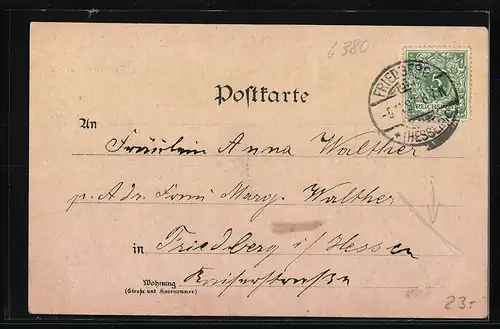 6380
Postkarte
5
FRIEDBERG
(HESSEN)
An
Fräulein Anna Walther
p. Adr. Frau Marg. Walther
in Friedberg i/ Hessen
Kaiserstraße
Wohnung
(Straße und Hausnummer)
23.-